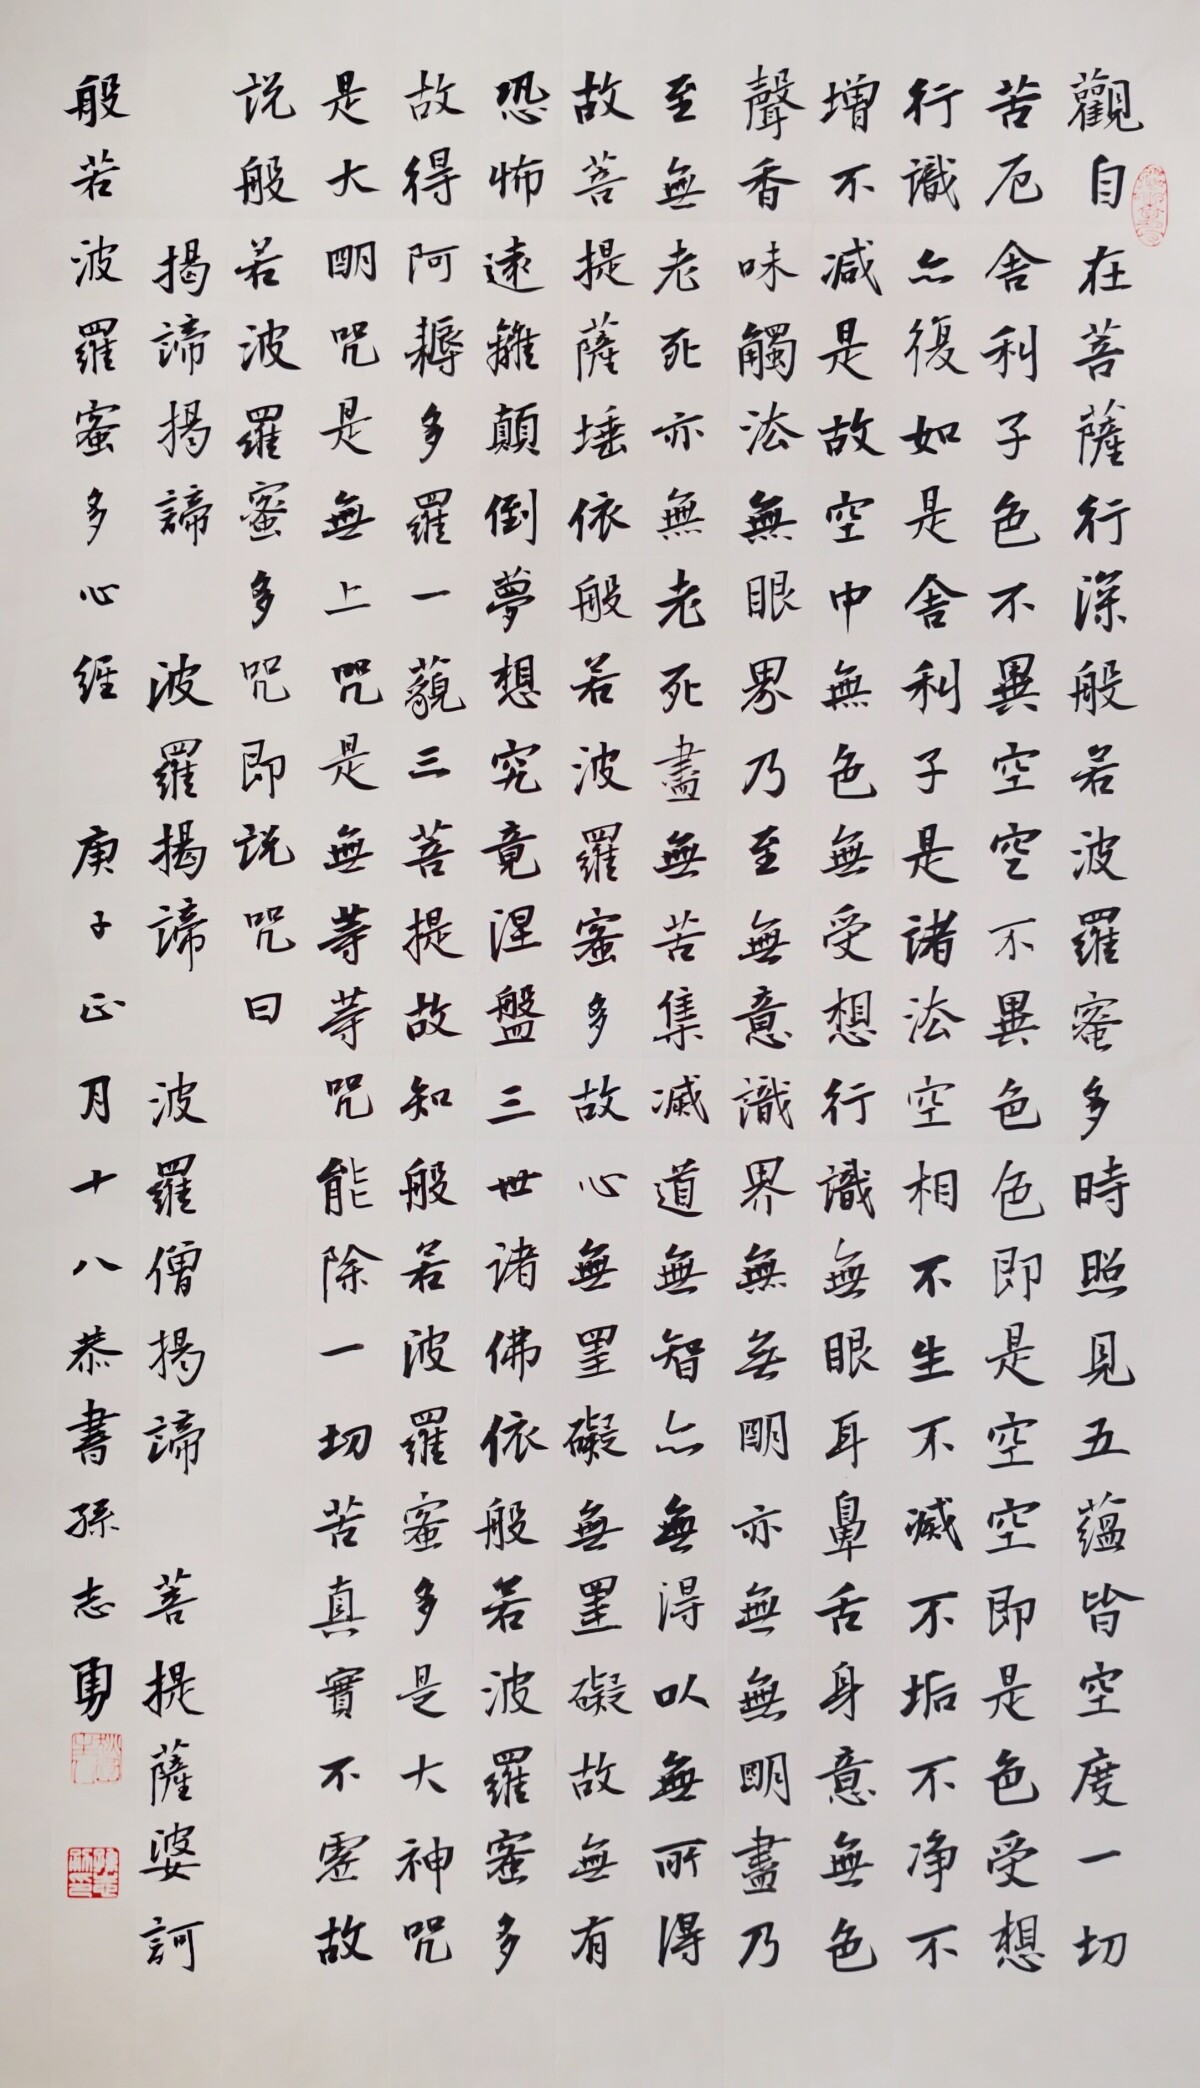 觀自在菩薩行深般若波羅蜜多時照見五蘊皆空度一切
苦厄舍利子色不異空空不異色色即是空空即是色受想
行識亦復如是舍利子是諸法空相不生不滅不垢不净不
增不减是故空中無色無受想行識無眼耳鼻舌身意無色
聲香味觸法無眼界乃至無意識界無無明亦無無明盡乃
至無老死亦無老死盡無苦集滅道無智亦無得以無所得
故菩提薩埵依般若波羅蜜多故心無罣礙無罣礙故無有
恐怖遠離顛倒夢想究竟涅盤三世诸佛依般若波羅蜜多
故得阿耨多羅一藐三菩提故知般若波羅蜜多是大神咒
是大明咒是無上咒是無等等咒能除一切苦真實不虛故
说般若波羅蜜多咒即说咒曰
揭諦揭諦 波羅揭諦 波羅僧揭諦 菩提薩婆訶
般若波羅蜜多心經 庚子正月十八恭書孫志勇